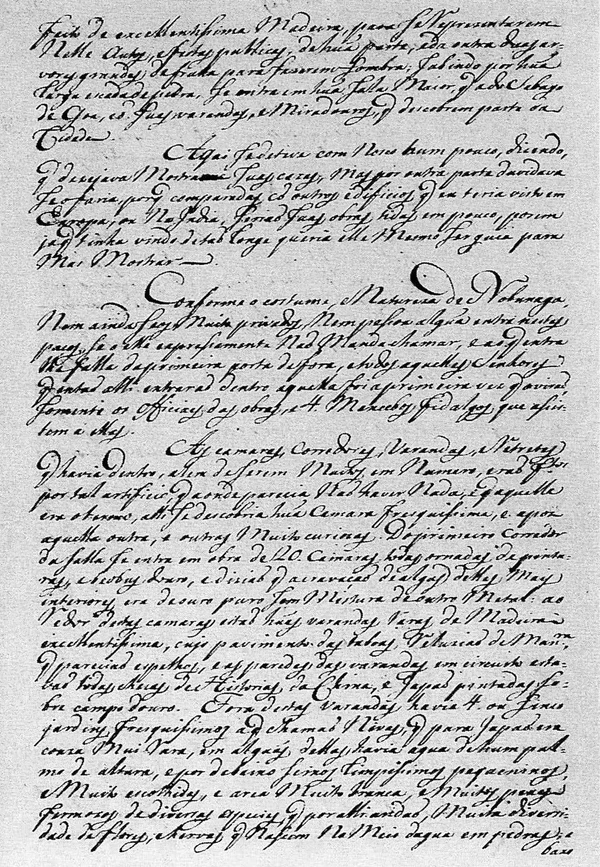 feito de excellentissima Madeira, para se representarem
Nelle Autos, e festas publicas; de hũa parte, e da outra duas ar-
vores grandes de fruita para fazerem sombra: Sobindo por hũa
larga escada de pedra, se entra em hũa salla Maior, q̃ a do Sabayo
de Goa, cõ suas varandas, e Miradouros, q̃ descobrem parte da
Cidade
Aqui se deteve com Nosco hum pouco, dizendo,
q̃ desejava Mostrar suas cazas, Mas por outra parte duvidava
se o faria, porq̃ comparadas cõ outros edificios q̃ eu teria visto em
Europa, ou Na India, serião suas obras tidas em pouco, porem
ja q̃ tinha vindo de tão longe queria elle Mesmo ser guia para
Mas Mostrar
Conforme o costume, e Natureza de Nobunaga,
Nem ainda seos Muito privados, Nem pessoa algũa entra nestes
paços, se elle expressamente Não Manda chamar, e aos q̃ entra
lhe falla da primeira porta de fora, e todos aquelles Senhores
q̃ então alli entrarão dentro aquella foi a primeira vez q̃ o virão,
somente os Officiaes das obras, e 4. Mancebos fidalgos, que assis-
tem a elles.
As camaras, Corredores, Varandas, e Retretes
q̃ havia dentro, alem de serem Muitos em Numero, erão
por tal artificio q̃ aonde parecia Não haver Nada, e q̃ aquelle
era o termo, alli se descobria hũa Camara fresquissima, e apoz
aquella outra, e outras Muito curiosas. Do primeiro Corredor
da salla se entra em obra de 20. Camaras, todas ornadas de pintu-
ras, e beobus d'ouro, e dizião q̃ a cravação de algũas dellas Mais
interiores era de ouro puro sem Mistura de outro Metal: ao
redor destas camaras estão hũas varandas Varas de Madeira
excellentissima, cujo pavimento das taboas reluzião de Manra,
q̃ parecião espelhos, e as paredes das varandas em circuito esta-
vão todas cheas de Historias da China, e Japão pintadas so-
bre campo d'ouro. Fora destas varandas havia 4. ou sinco
jardins fresquissimos a q̃ chamão Nivas, q̃ para Japão era
couza Mui rara, em algũas dellas havia agua de hum pal-
mo de altura, e por debaixo seixos limpissimos pequeninos,
e Muito escolhidos, e area Muito branca, e Muitos peixes
fermosos de diversas especies q̃ por alli andão, Muita diversi-
dade de flores, e hervas q̃ Nascem No Meio dagua em pedras, e
baxo